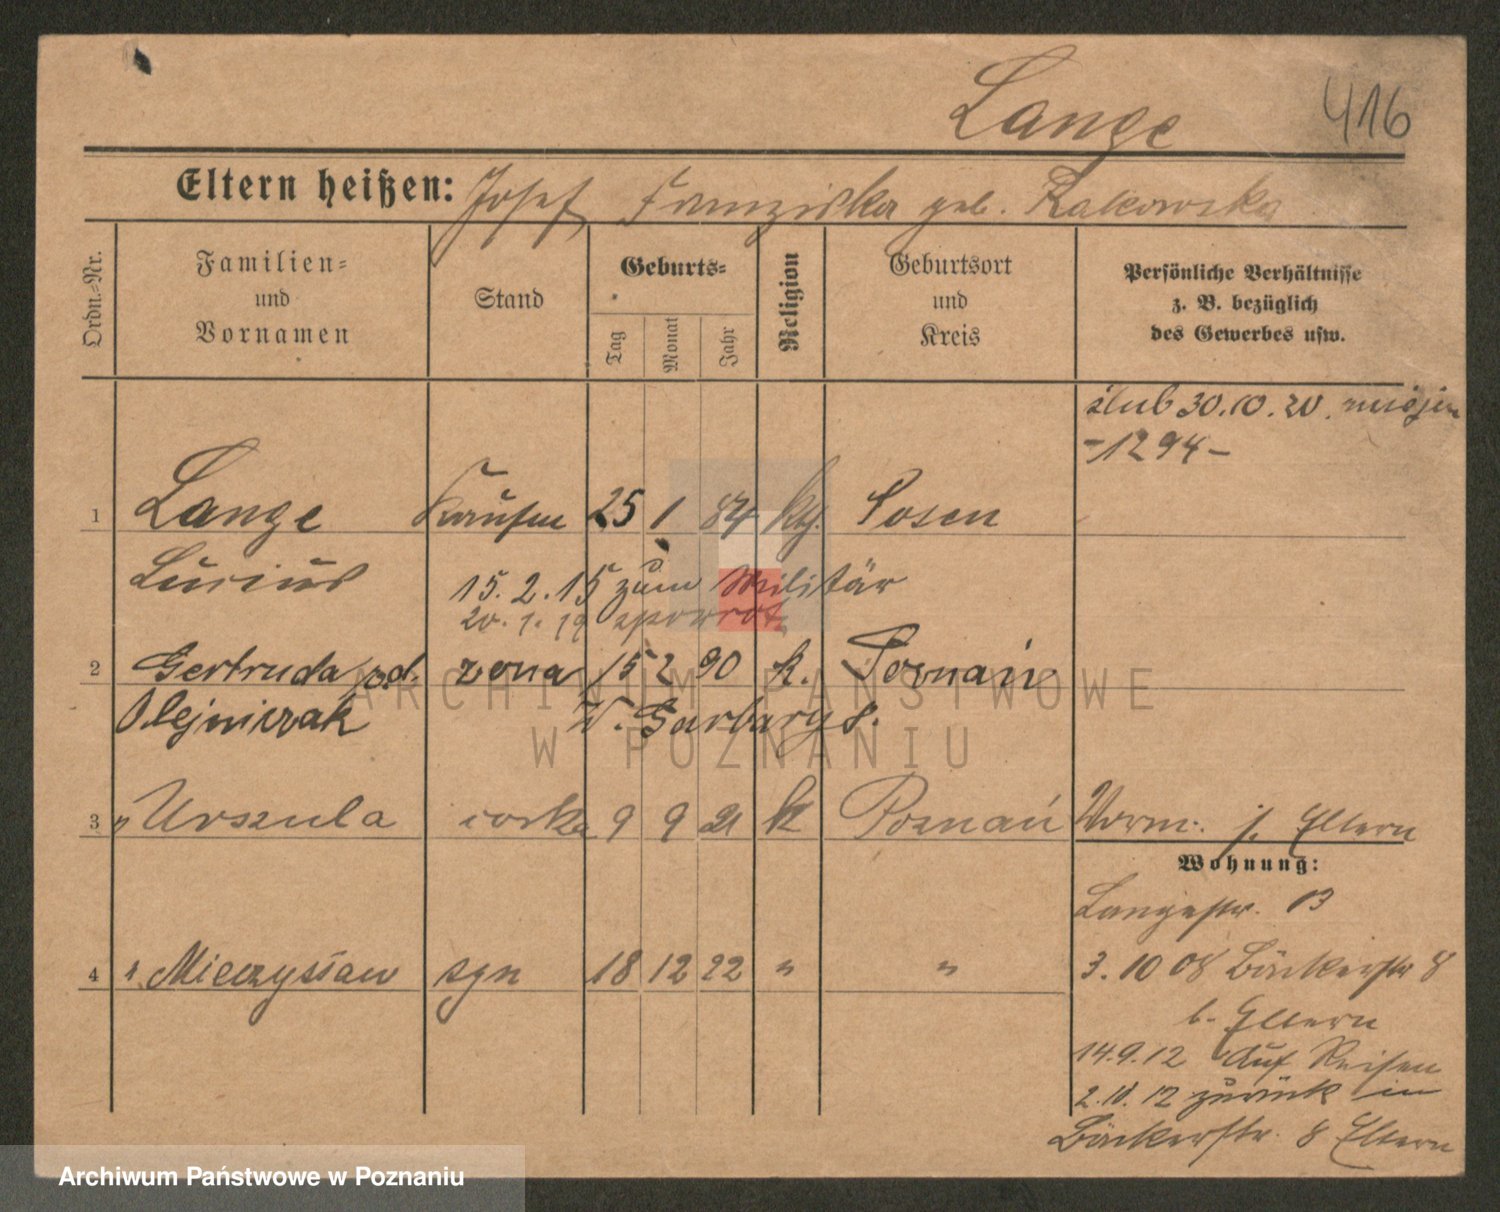 Lange 416
Eltern heißen: Josef, Franziska geb. Rakowska
Ordn.-Nr.
Familien-
und
Vornamen
Stand
Geburts-
Tag
Monat
Jahr
Religion
Geburtsort
und
Kreis
Persönliche Verhältnisse
z. B. bezüglich
des Gewerbes usw.
ślub 30.10.20.
-1294-
1 Lange Kaufm 25 1 84 kth. Posen
15.2.15 zum Militär
20.1.19 zpowrot
2 Gertruda żona 15 2 90 k. Poznań
Olejniczak W. Garbary 8.
3 " Urszula córka 9 9 21 k Poznań
Vorm. f. Eltern
Wohnung:
Langestr. 13
4 " Mieczysław syn 18 12 22 " "
3.10 08 Bäckerstr 8
b. Eltern
14.9.12 Auf Reisen
2.10.12 zurück in
Bäckerstr. 8 Eltern
ARCHIWUM PAŃSTWOWE
W POZNANIU
Archiwum Państwowe w Poznaniu